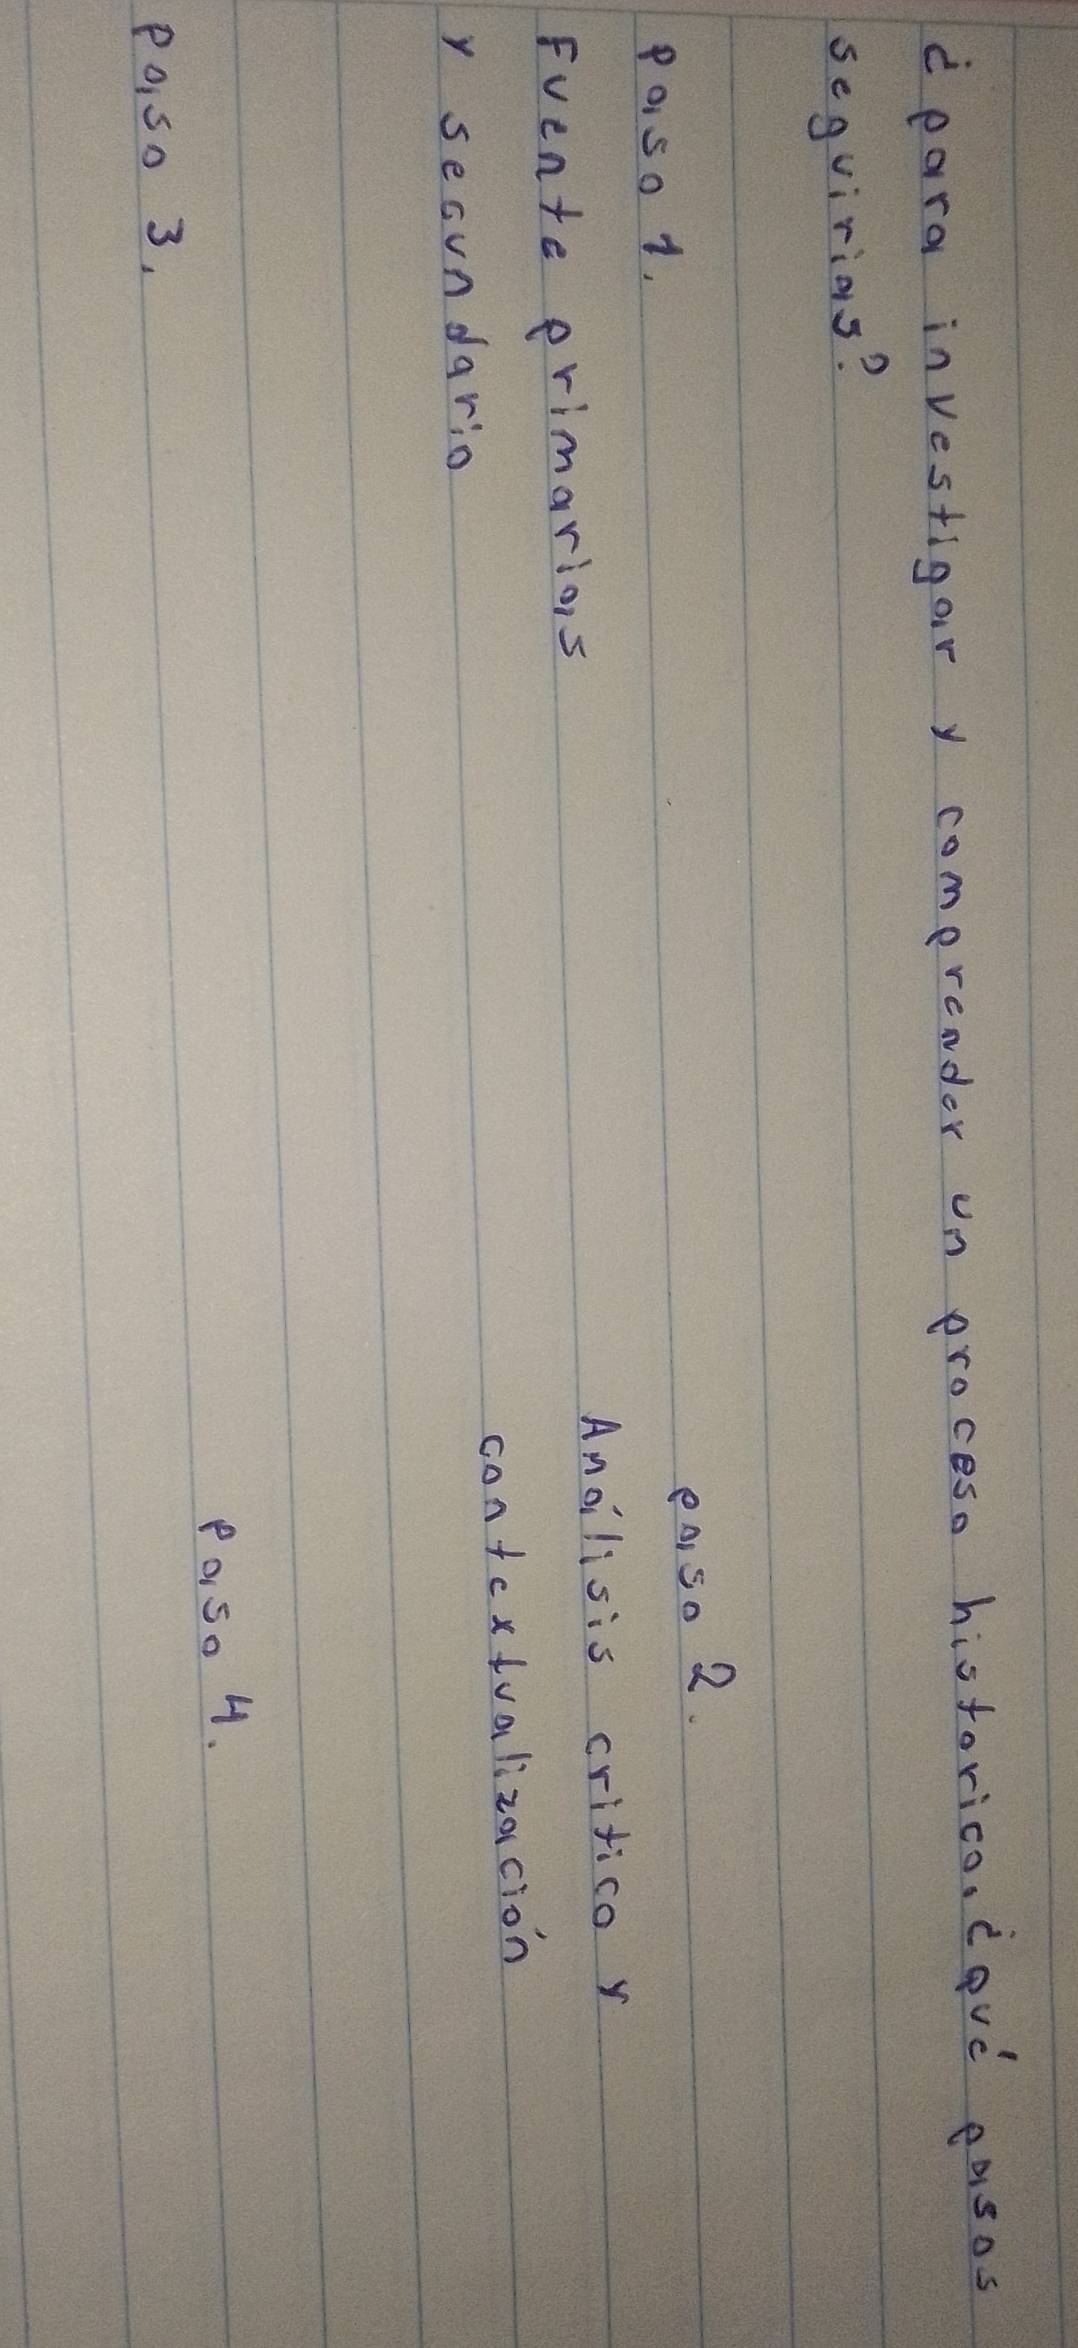 ¿para investigar y comprender un proceso historico, ¿qué pasos
seguirias?.
paso 1.
paso 2.
Fuente primarias
Análisis critico y
y secundario
contextualización
paso 3.
paso 4.